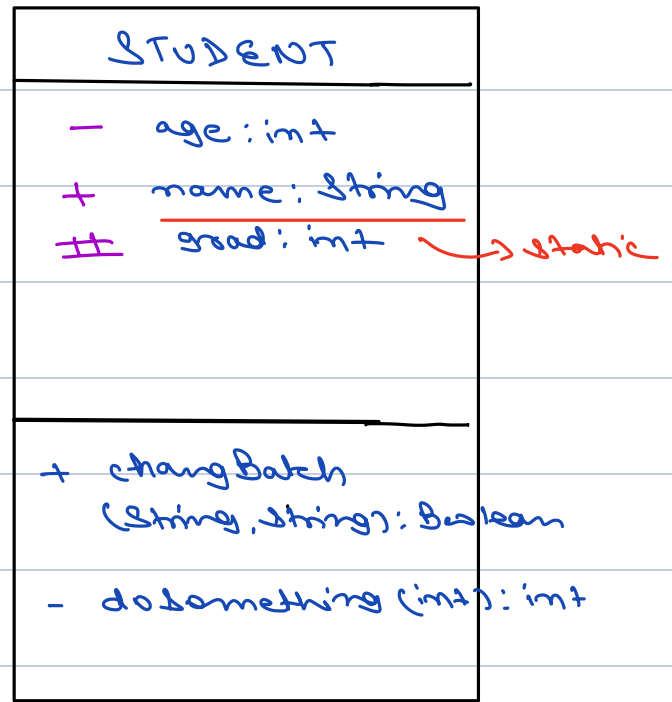 STUDENT
- age : int
+ name : String
# grad : int → static
+ changBatch
(String, String) : Boolean
- doSomething (int) : int